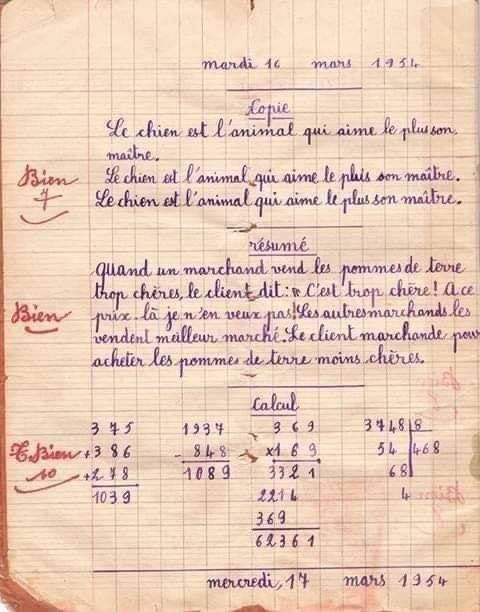 mardi 16 mars 1954
Copie
Le chien est l'animal qui aime le plus son
maître.
Le chien est l'animal qui aime le plus son maître.
Le chien est l'animal qui aime le plus son maître.
Bien
7
résumé
Quand un marchand vend les pommes de terre
trop chères, le client dit: « C'est trop chère! A ce
prix là je n'en veux pas! Les autres marchands les
vendent meilleur marché. Le client marchande pour
acheter les pommes de terre moins chères.
Bien
Calcul
T. Bien
10
375 1937 369 3748 8
+386 - 848 x169 54 468
+278 1089 3321 68
1039 2214 4
369
62361
mercredi, 17 mars 1954